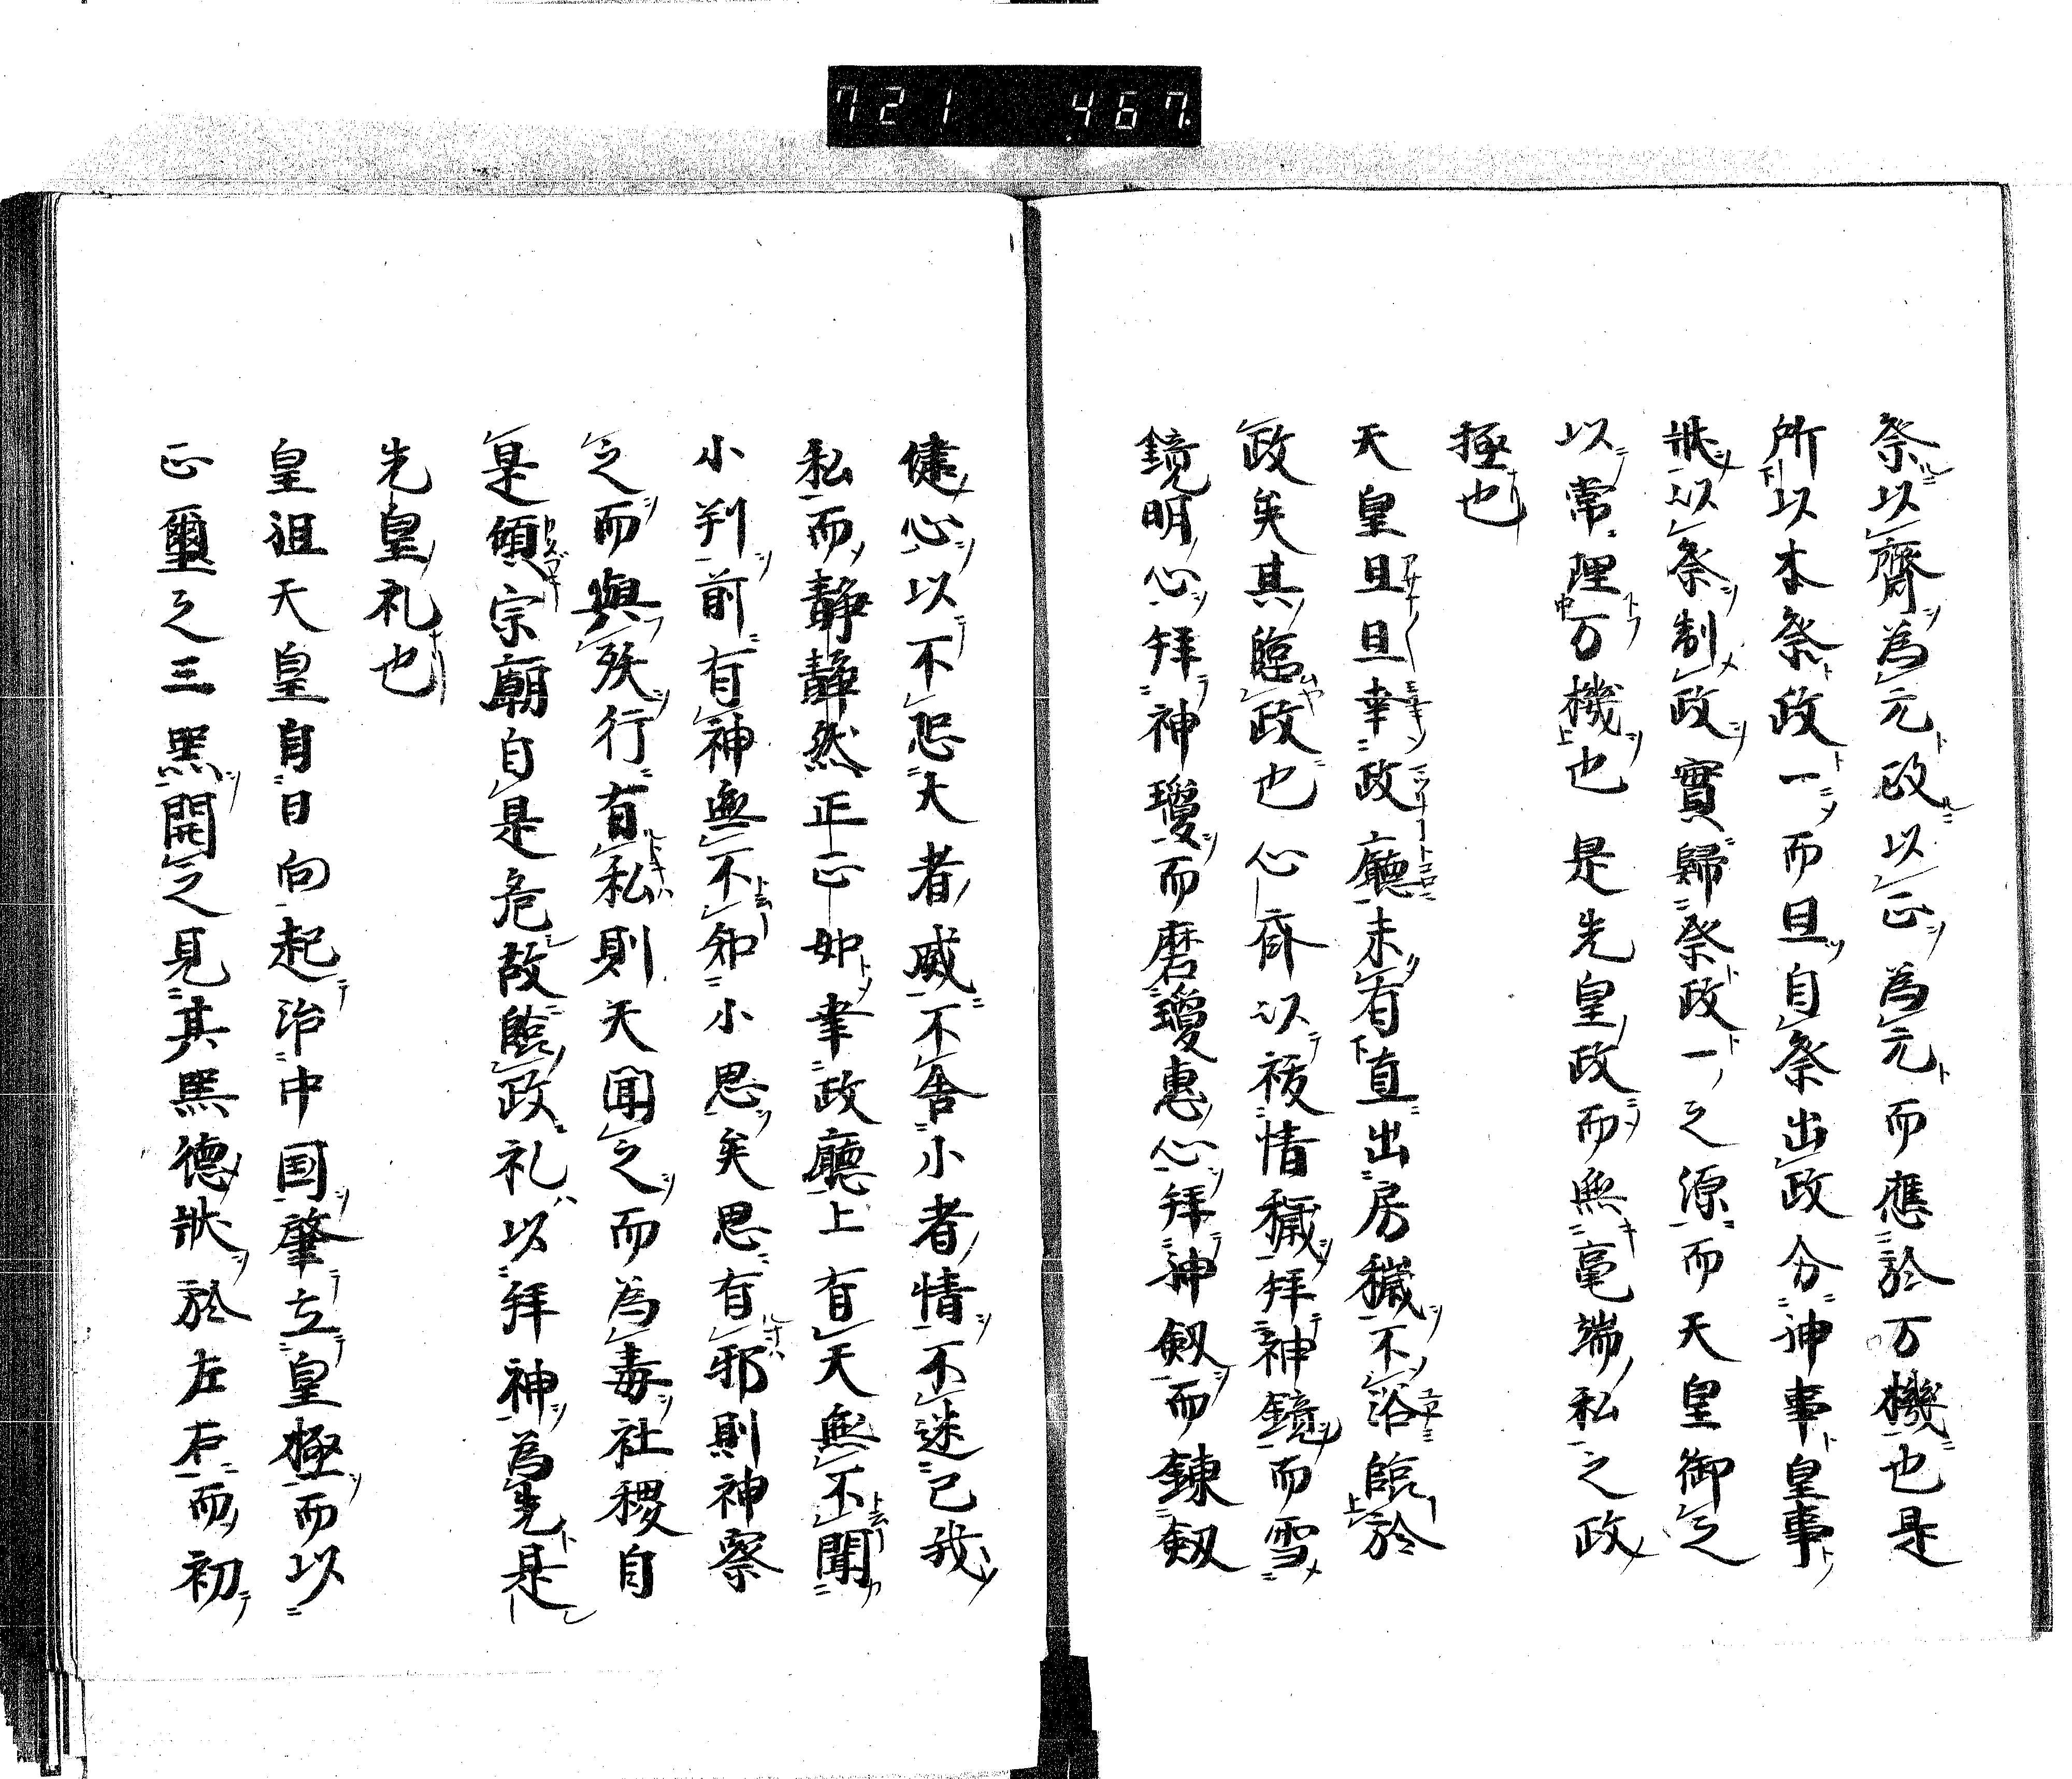 721 467
祭以齊為元政以正為元而應於万機也是
所以本祭政一而旦自祭出政分神事皇事
状以祭制政實歸祭政一之源而天皇御之
以常理万機也是先皇政而無毫端私之政
極也
天皇旦旦幸政廳未有直出房穢不浴臨於
政矣其臨政也心齊以祓情穢拜神鏡而雪
鏡明心拜神瓊而磨瓊惠心拜神劔而錬劔
健心以不恐大者威不舎小者情不迷己我
私而靜靜然正正如幸政廳上有天無不聞
小判前有神無不知小思矣思有邪則神察
之而與殃行有私則天聞之而為毒社稷自
是傾宗廟自是危故臨政礼以拜神為先是
先皇礼也
皇祖天皇自日向起治中国肇立皇極而以
正璽之三器開之見其器德状於左右而初